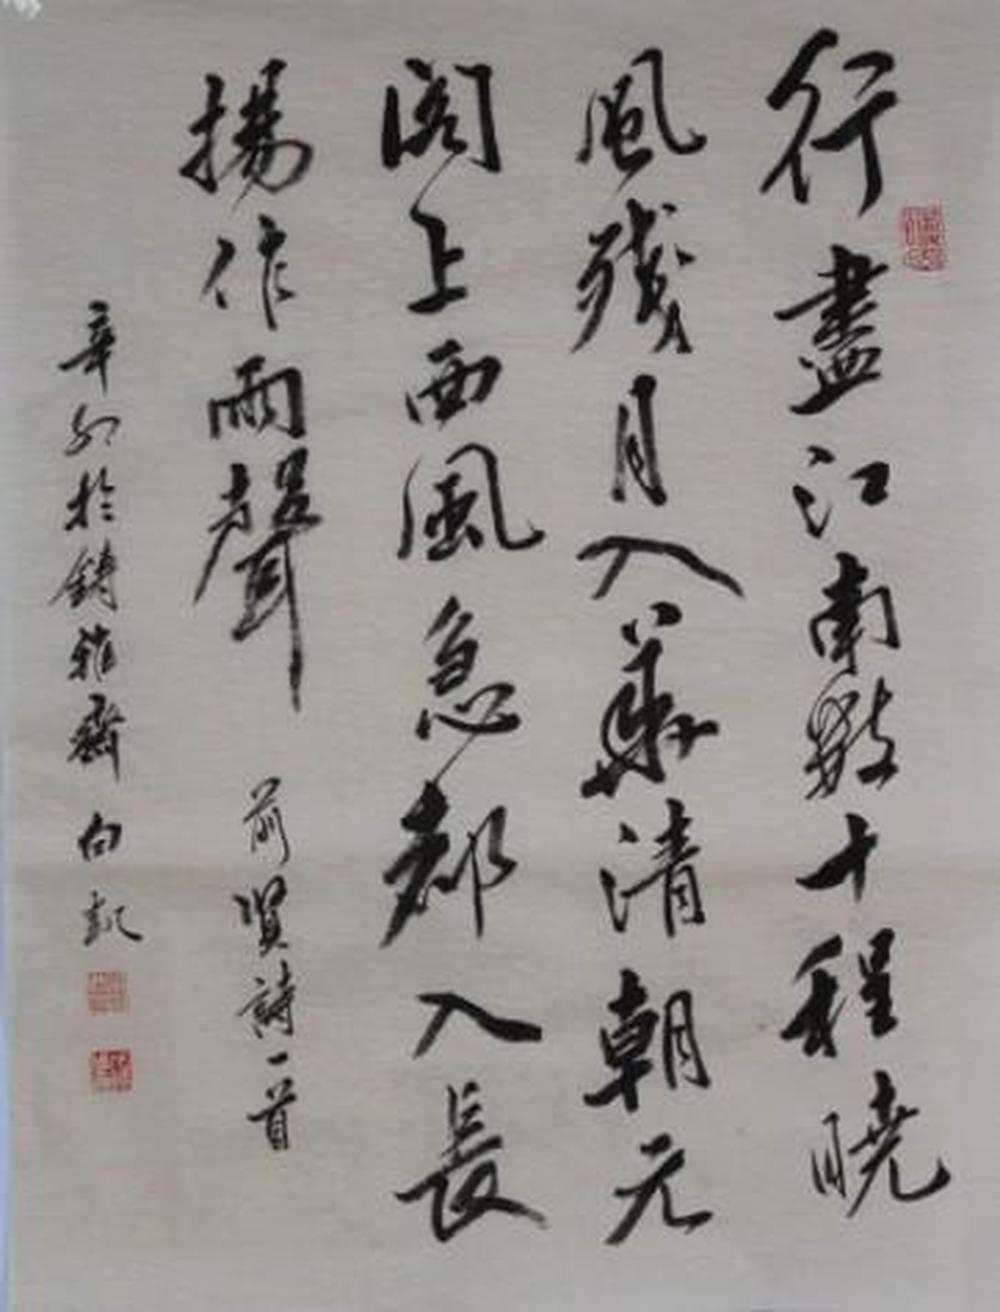 行盡江南數十程曉
風殘月入華清朝元
閣上西風急都入長
揚作雨聲
前賢詩一首
辛卯於鑄雅齋白凱